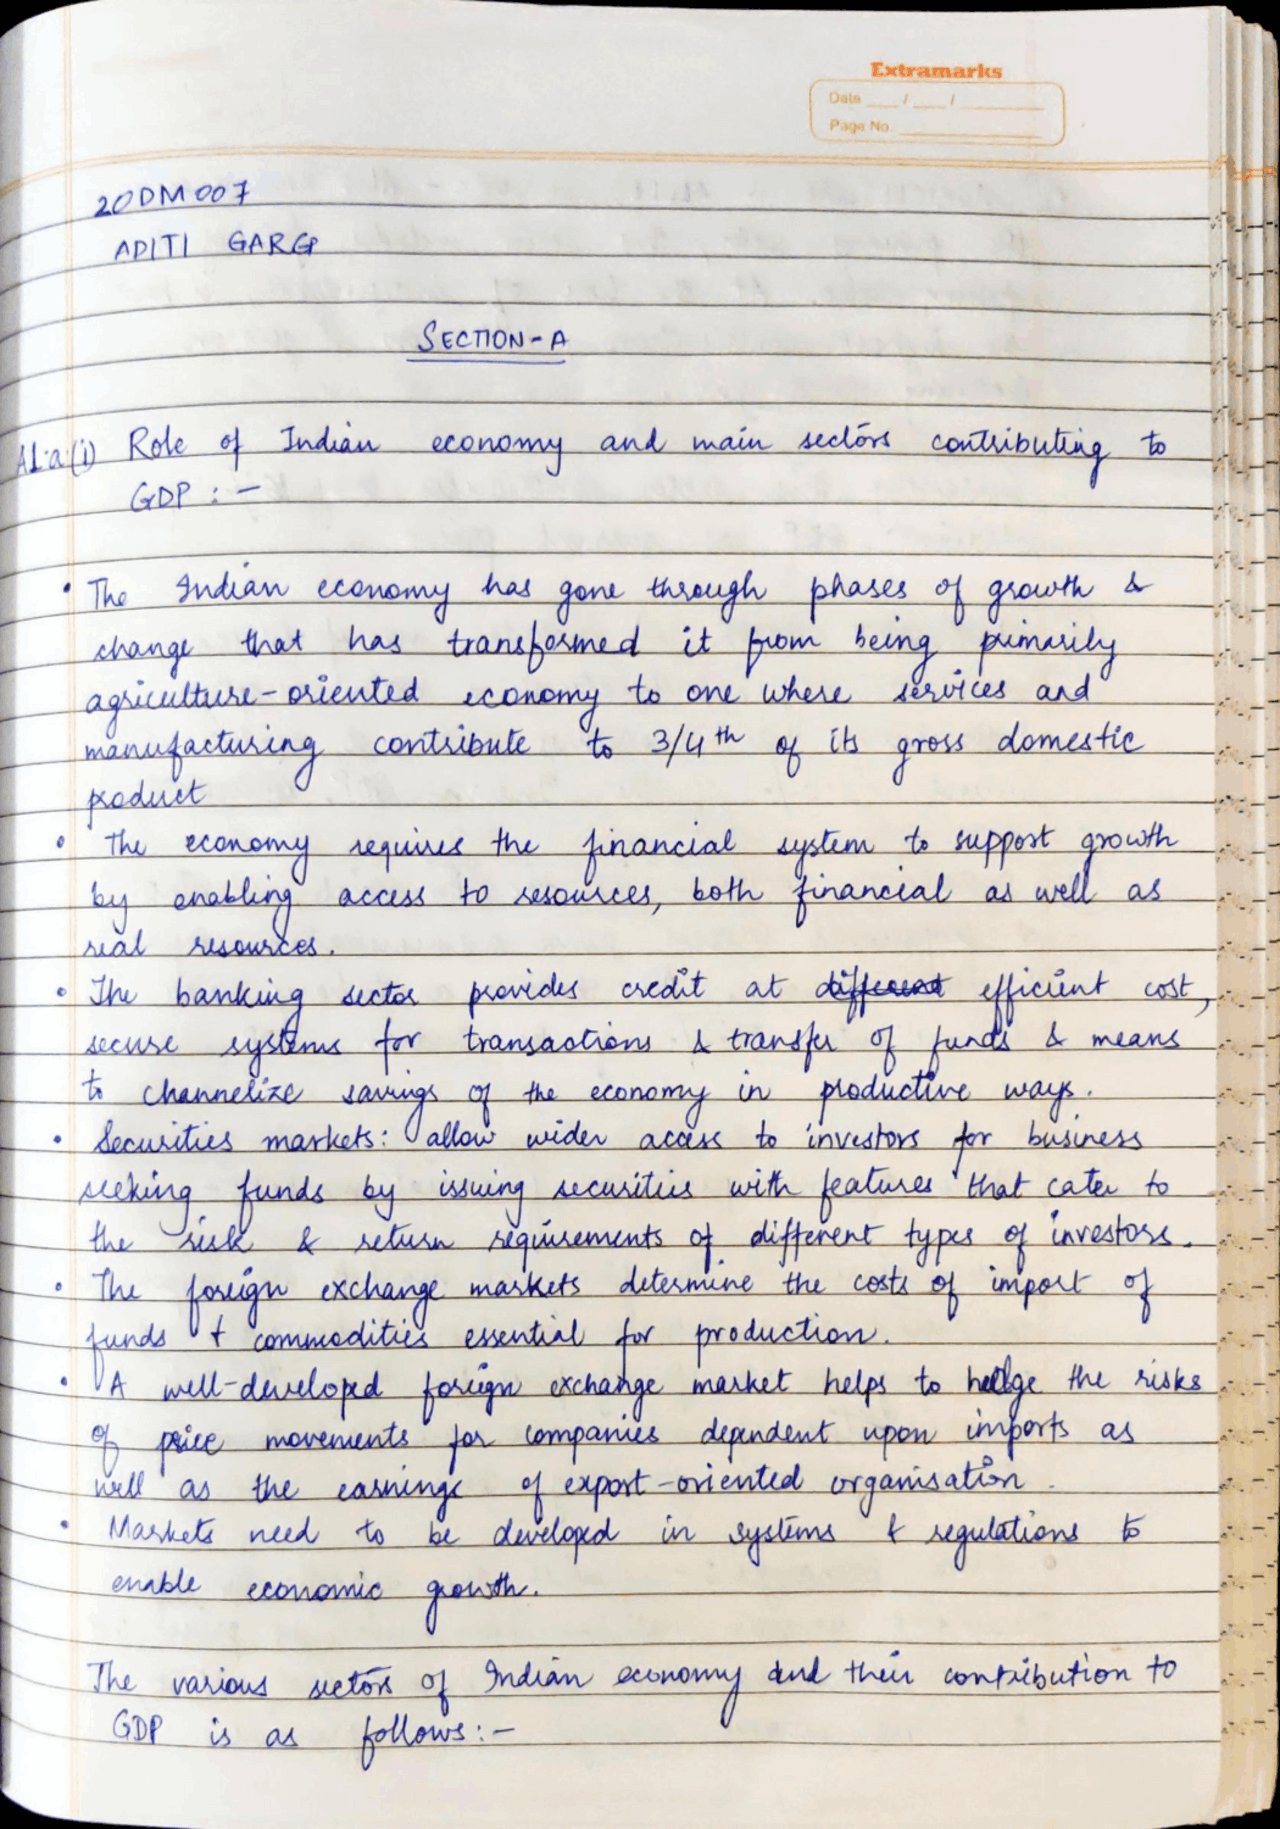 Extramarks
Date ___/___/______
Page No. ______
20DM007
ADITI GARG
SECTION-A
A1.a.(i) Role of Indian economy and main sectors contributing to
GDP : -
• The Indian economy has gone through phases of growth &
change that has transformed it from being primarily
agriculture-oriented economy to one where services and
manufacturing contribute to 3/4th of its gross domestic
product
• The economy requires the financial system to support growth
by enabling access to resources, both financial as well as
real resources.
• The banking sector provides credit at different efficient cost,
secure systems for transactions & transfer of funds & means
to channelize savings of the economy in productive ways.
• Securities markets: allow wider access to investors for business
seeking funds by issuing securities with features that cater to
the risk & return requirements of different types of investors.
• The foreign exchange markets determine the costs of import of
funds & commodities essential for production.
• A well-developed foreign exchange market helps to hedge the risks
of price movements for companies dependent upon imports as
well as the earnings of export-oriented organisation.
• Markets need to be developed in systems & regulations to
enable economic growth.
The various sectors of Indian economy and their contribution to
GDP is as follows:-